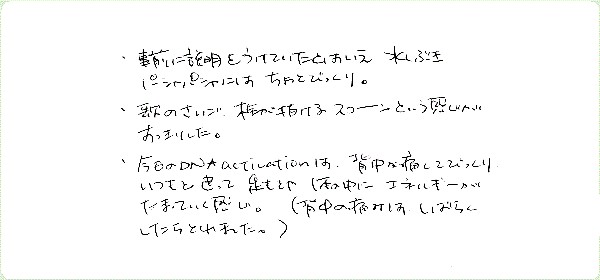 ・事前に説明をうけていたとはいえ 水しぶき
パシャパシャには ちょっとびっくり。
・歌のさいご、栓が抜ける スコーンという感じが
ありました。
・今日のDNA activationは、背中が痛くてびっくり
いつもと違って 背中に エネルギーが
たまっていく感じ。（背中の痛みは、しばらく
したらとれました。）